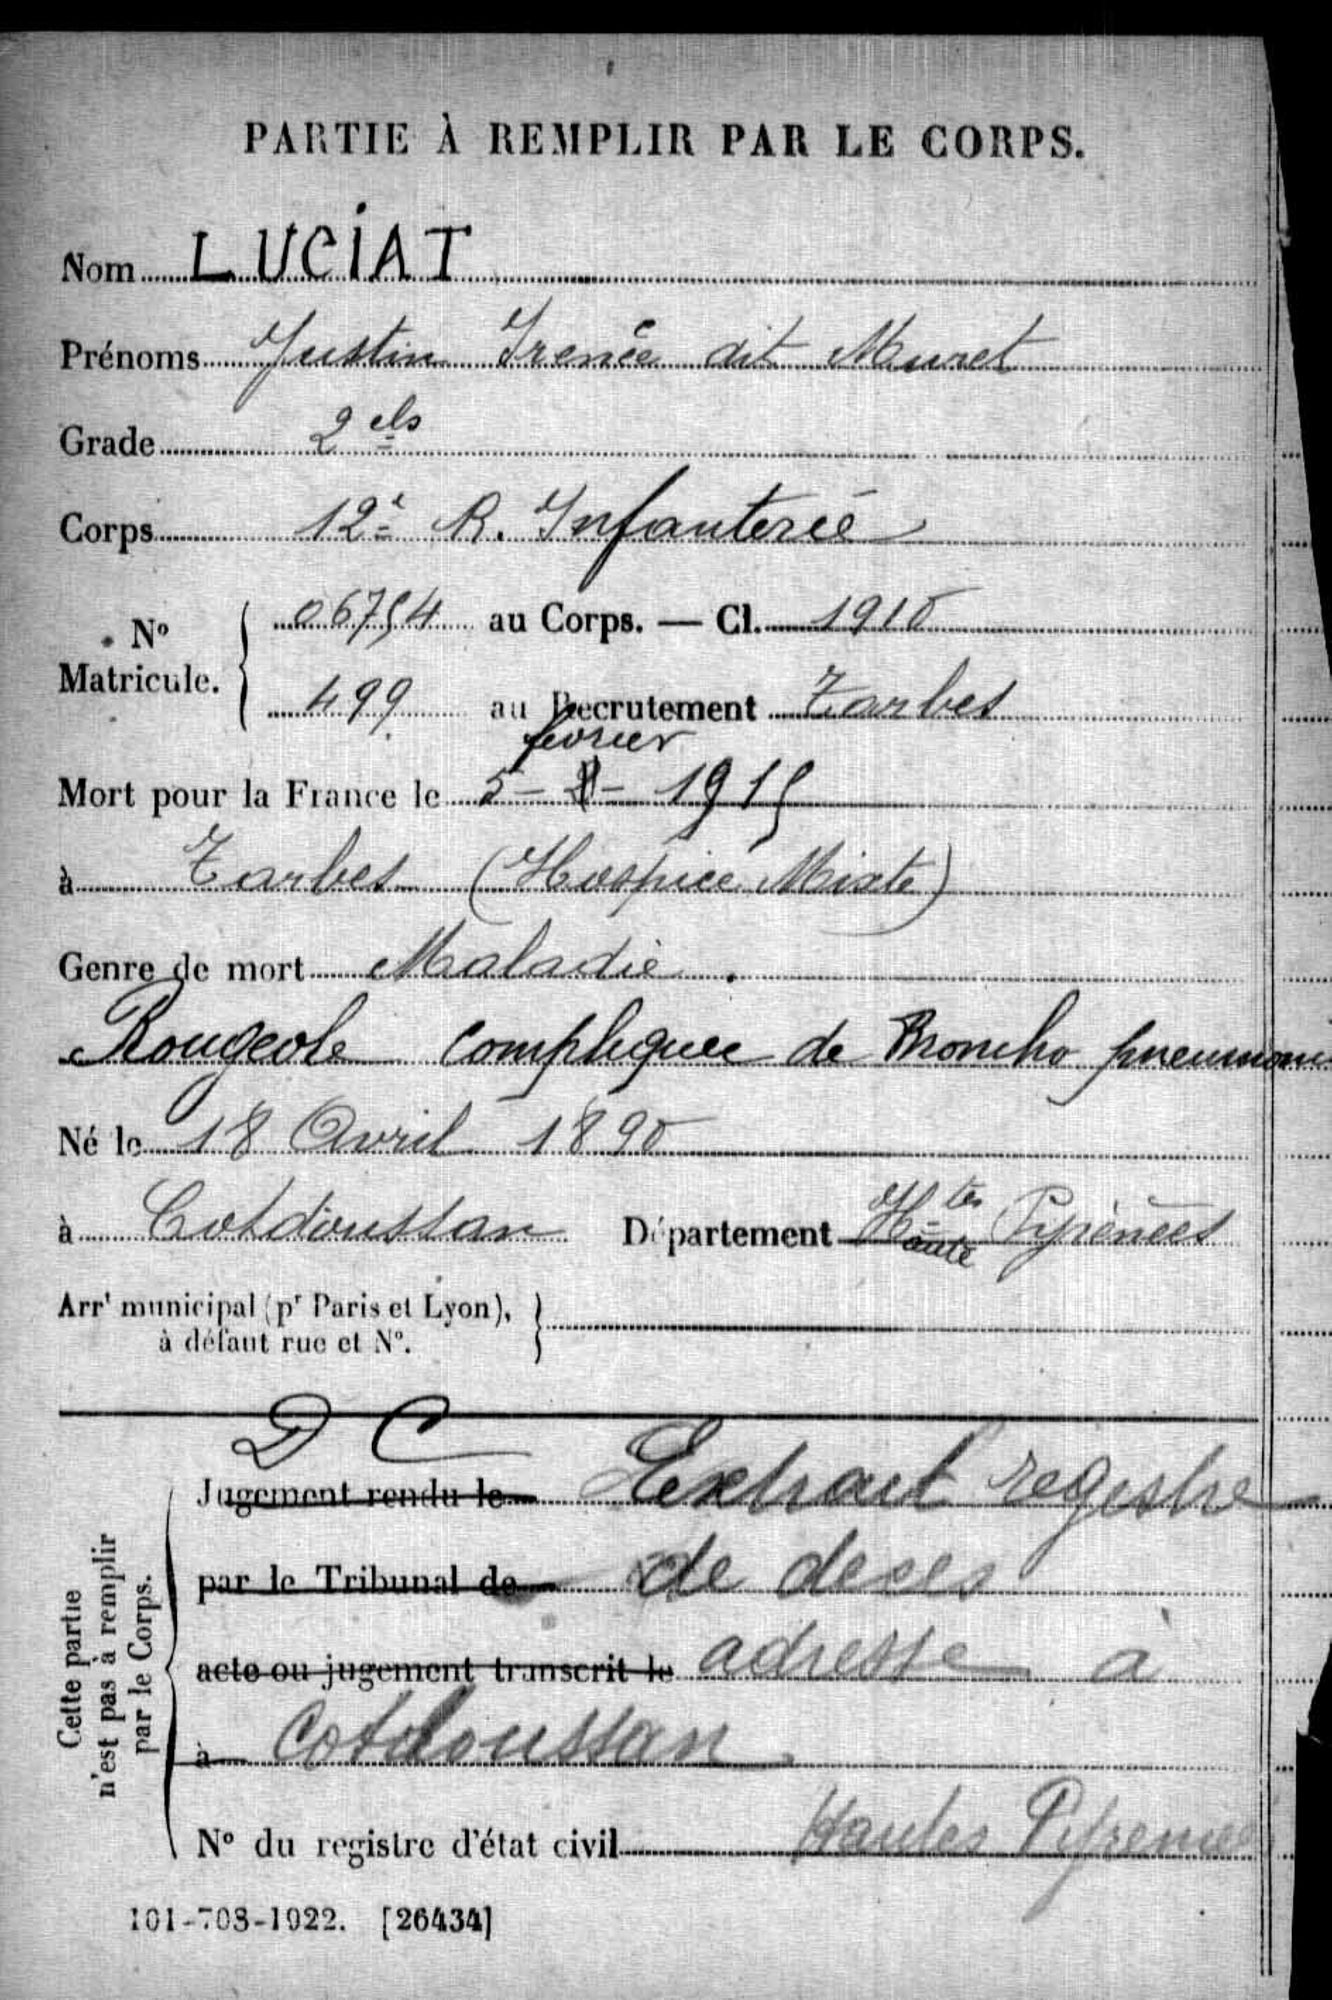 PARTIE À REMPLIR PAR LE CORPS.
Nom LUCIAT
Prénoms Justin Irenée dit Muret
Grade 2 cls
Corps 12e R. Infanterie
No Matricule. 06754 au Corps. — Cl. 1910
499 au Recrutement Tarbes
février
Mort pour la France le 5 - 2 - 1915
à Tarbes (Hospice Mixte)
Genre de mort Maladie.
Rougeole compliquée de Broncho pneumonie
Né le 18 Avril 1890
à Cotdoussan Département Htes Pyrénées
Haute
Arrt municipal (pr Paris et Lyon),
à défaut rue et No.
D C
Jugement rendu le Extrait registre
par le Tribunal de de deces
acte ou jugement transcrit le adresse à
à Cotdoussan
No du registre d'état civil Hautes Pyrenees
Cette partie
n'est pas à remplir
par le Corps.
101-708-1922. [26434]